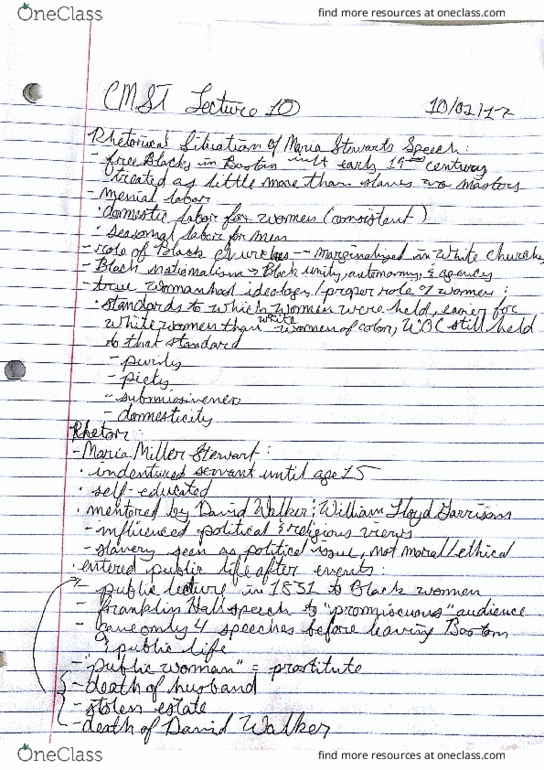 OneClass
find more resources at oneclass.com
CMST Lecture 10
10/02/17
Rhetorical Situation of Maria Stewarts Speech:
- free Blacks in Boston in early 19th century
treated as little more than slaves w/o masters
- menial labor
· domestic labor for women (consistent)
· seasonal labor for men
- role of Black churches -- marginalized in White church
- Black nationalism → Black unity, autonomy, & agency
- true womanhood ideology / proper role of women:
· standards to which women were held, easier for
white women than women of color, WOC still held
to that standard
- purity
- piety
- submissiveness
- domesticity
Rhetor:
- Maria Miller Stewart:
· indentured servant until age 15
· self-educated
· mentored by David Walker & William Lloyd Garrison
- influenced political & religious views
- slavery seen as political issue, not moral/ethical
· entered public life after events:
- public lecture in 1831 to Black women
- Franklin Hall speech to "promiscuous" audience
- gave only 4 speeches before leaving Boston
& public life
- "public woman" = prostitute
- death of husband
- stolen estate
- death of David Walker
OneClass
find more resources at oneclass.com